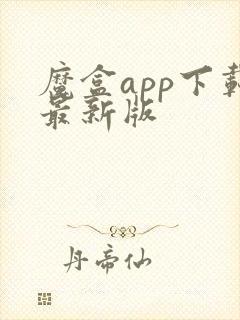 魔盒app下载
最新版
丹帝仙